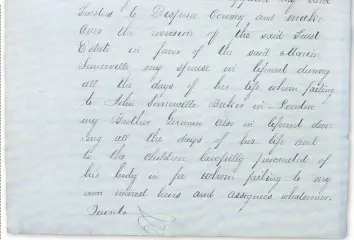 Trustees to Dispone Convey and make
over the reversion of the said Trust
Estate in favor of the said Marion
Somerville my spouse in liferent during
all the days of her life whom failing
to John Somerville Baker in London
my Brother German also in liferent dur=
=ing all the days of his life and
to the children lawfully procreated of
his body in fee whom failing to my
own nearest heirs and assignees whatsoever.
Quinto